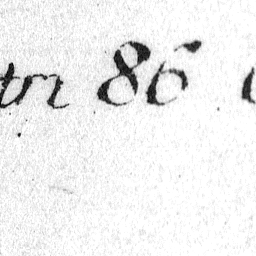 tri 86